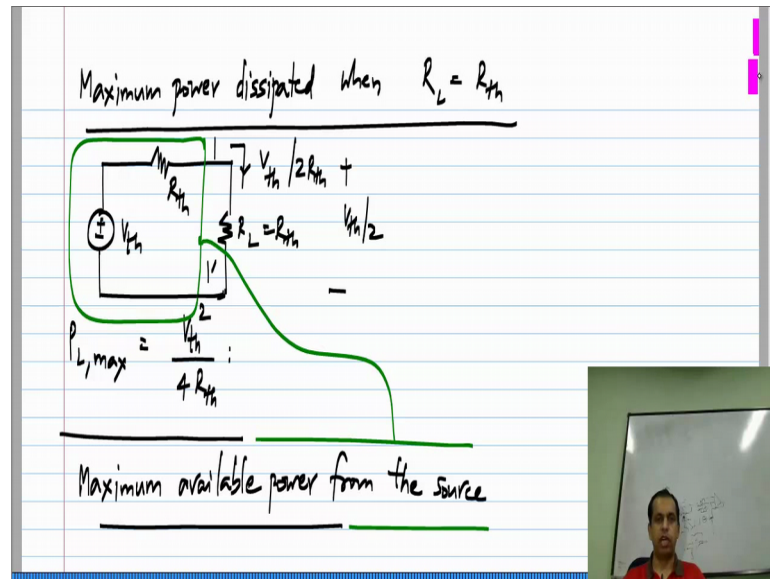 Maximum power dissipated when R_L = R_th
1 V_th / 2R_th +
R_th
± V_th R_L = R_th V_th/2
1'
−
P_L,max = V_th² / 4 R_th :
Maximum available power from the source